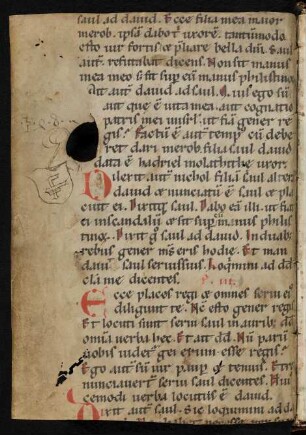 saul ad dauid. Ecce filia mea maior
merob. ipsā dabo t̄ uxorē. tantūmodo
esto uir fortis & p̄liare bella dn̄i. Saul
aut̄ reputabat dicens. Non sit manus
mea in eo s; sit sup eū manus philistinoꝝ
Ait aut̄ dauid ad saul. Quis ego sū
aut que ē uita mea aut cognatio
patris mei in isrł. ut fiā gener re
gis. Factū ē aut̄ temp̄ cū debe
ret dari merob filia saul dauid
data ē hadrieli molathite uxor.
Dilexit aut̄ michol filia saul altera
dauid & nunciatū ē saul & pla
cuit ei. Dixitq; saul. Dabo eā illi. ut fiat
ei in scandalū & sit sup eū manus philis
tinoꝝ. Dixit g̊ saul ad dauid. In duab;
rebus gener m̄s eris hodie. Et man
dauit saul seruis suis. Loqmini ad dd
clā me dicentes.
Ecce places regi & omnes serui ei
diligunt te. Nc̄ esto gener regis
Et locuti sunt serui saul in aurib; dd
omīa uerba hec. Et ait dd. Nū parū
uobis uidet̄ generum esse regis.
Ego aut̄ sū uir paup & tenuis. Et re
nunciauer̄t serui saul dicentes. Hui
cemodi uerba locutus ē dauid.
Dixit aut̄ saul. Sic loquimini ad